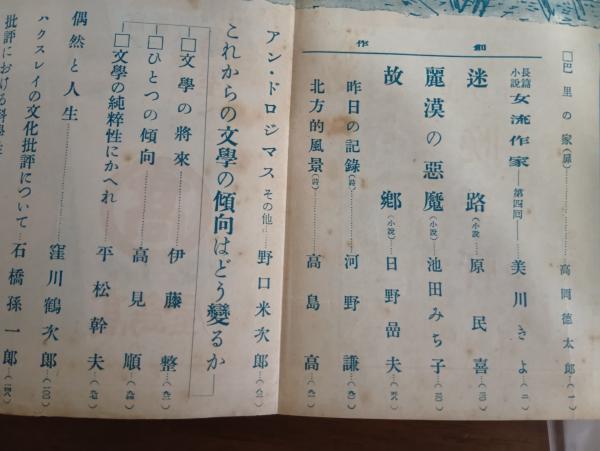 □巴里の家(扉)…………高岡德太郎…(一)
創作
長篇小說 女流作家——第四回——美川きよ…(二)
迷路(小說)…原民喜…
麗漠の惡魔(小說)…池田みち子…
故鄕(小說)…日野嵒夫…
昨日の記錄(詩)…河野謙…
北方的風景(詩)…………高島高…
アン・ドロジマス その他…野口米次郎…
これからの文學の傾向はどう變るか
□文學の將來………伊藤整…
□ひとつの傾向………高見順…
□文學の純粹性にかへれ…平松幹夫…
偶然と人生…………窪川鶴次郎…(一〇〇)
ハクスレイの文化批評について…石橋孫一郎…
批評における科學性